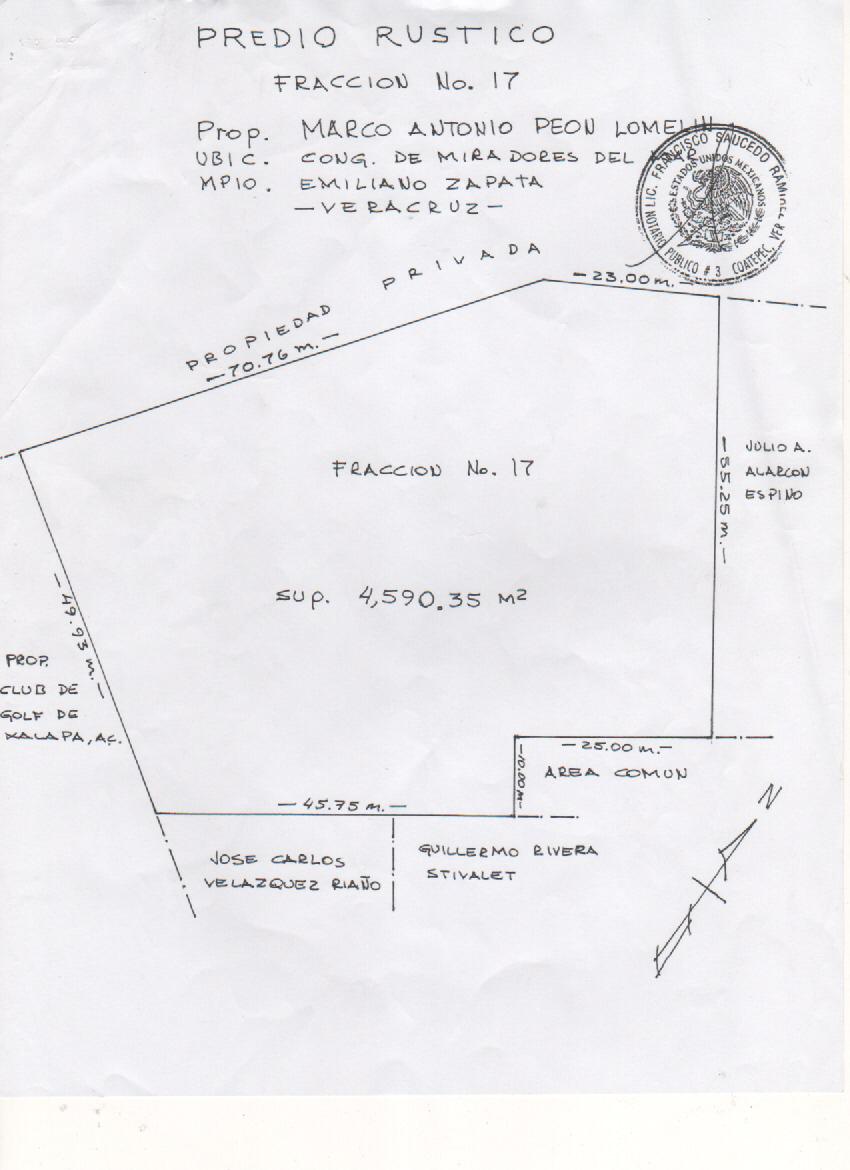 PREDIO RUSTICO
FRACCION No. 17
Prop. MARCO ANTONIO PEON LOMELIN
UBIC. CONG. DE MIRADORES DEL MAR
MPIO. EMILIANO ZAPATA
-VERACRUZ-
LIC. FRANCISCO SAUCEDO RAMIREZ
ESTADOS UNIDOS MEXICANOS
NOTARIO PUBLICO # 3 COATEPEC, VER
PROPIEDAD PRIVADA
-70.76 m.-
-23.00 m.-
-55.25 m.-
JULIO A.
ALARCON
ESPINO
FRACCION No. 17
SUP. 4,590.35 M2
-49.93 m.-
PROP.
CLUB DE
GOLF DE
XALAPA, AC.
-25.00 m.-
-10.00 m-
AREA COMUN
-45.75 m.-
JOSE CARLOS
VELAZQUEZ RIAÑO
GUILLERMO RIVERA
STIVALET
N